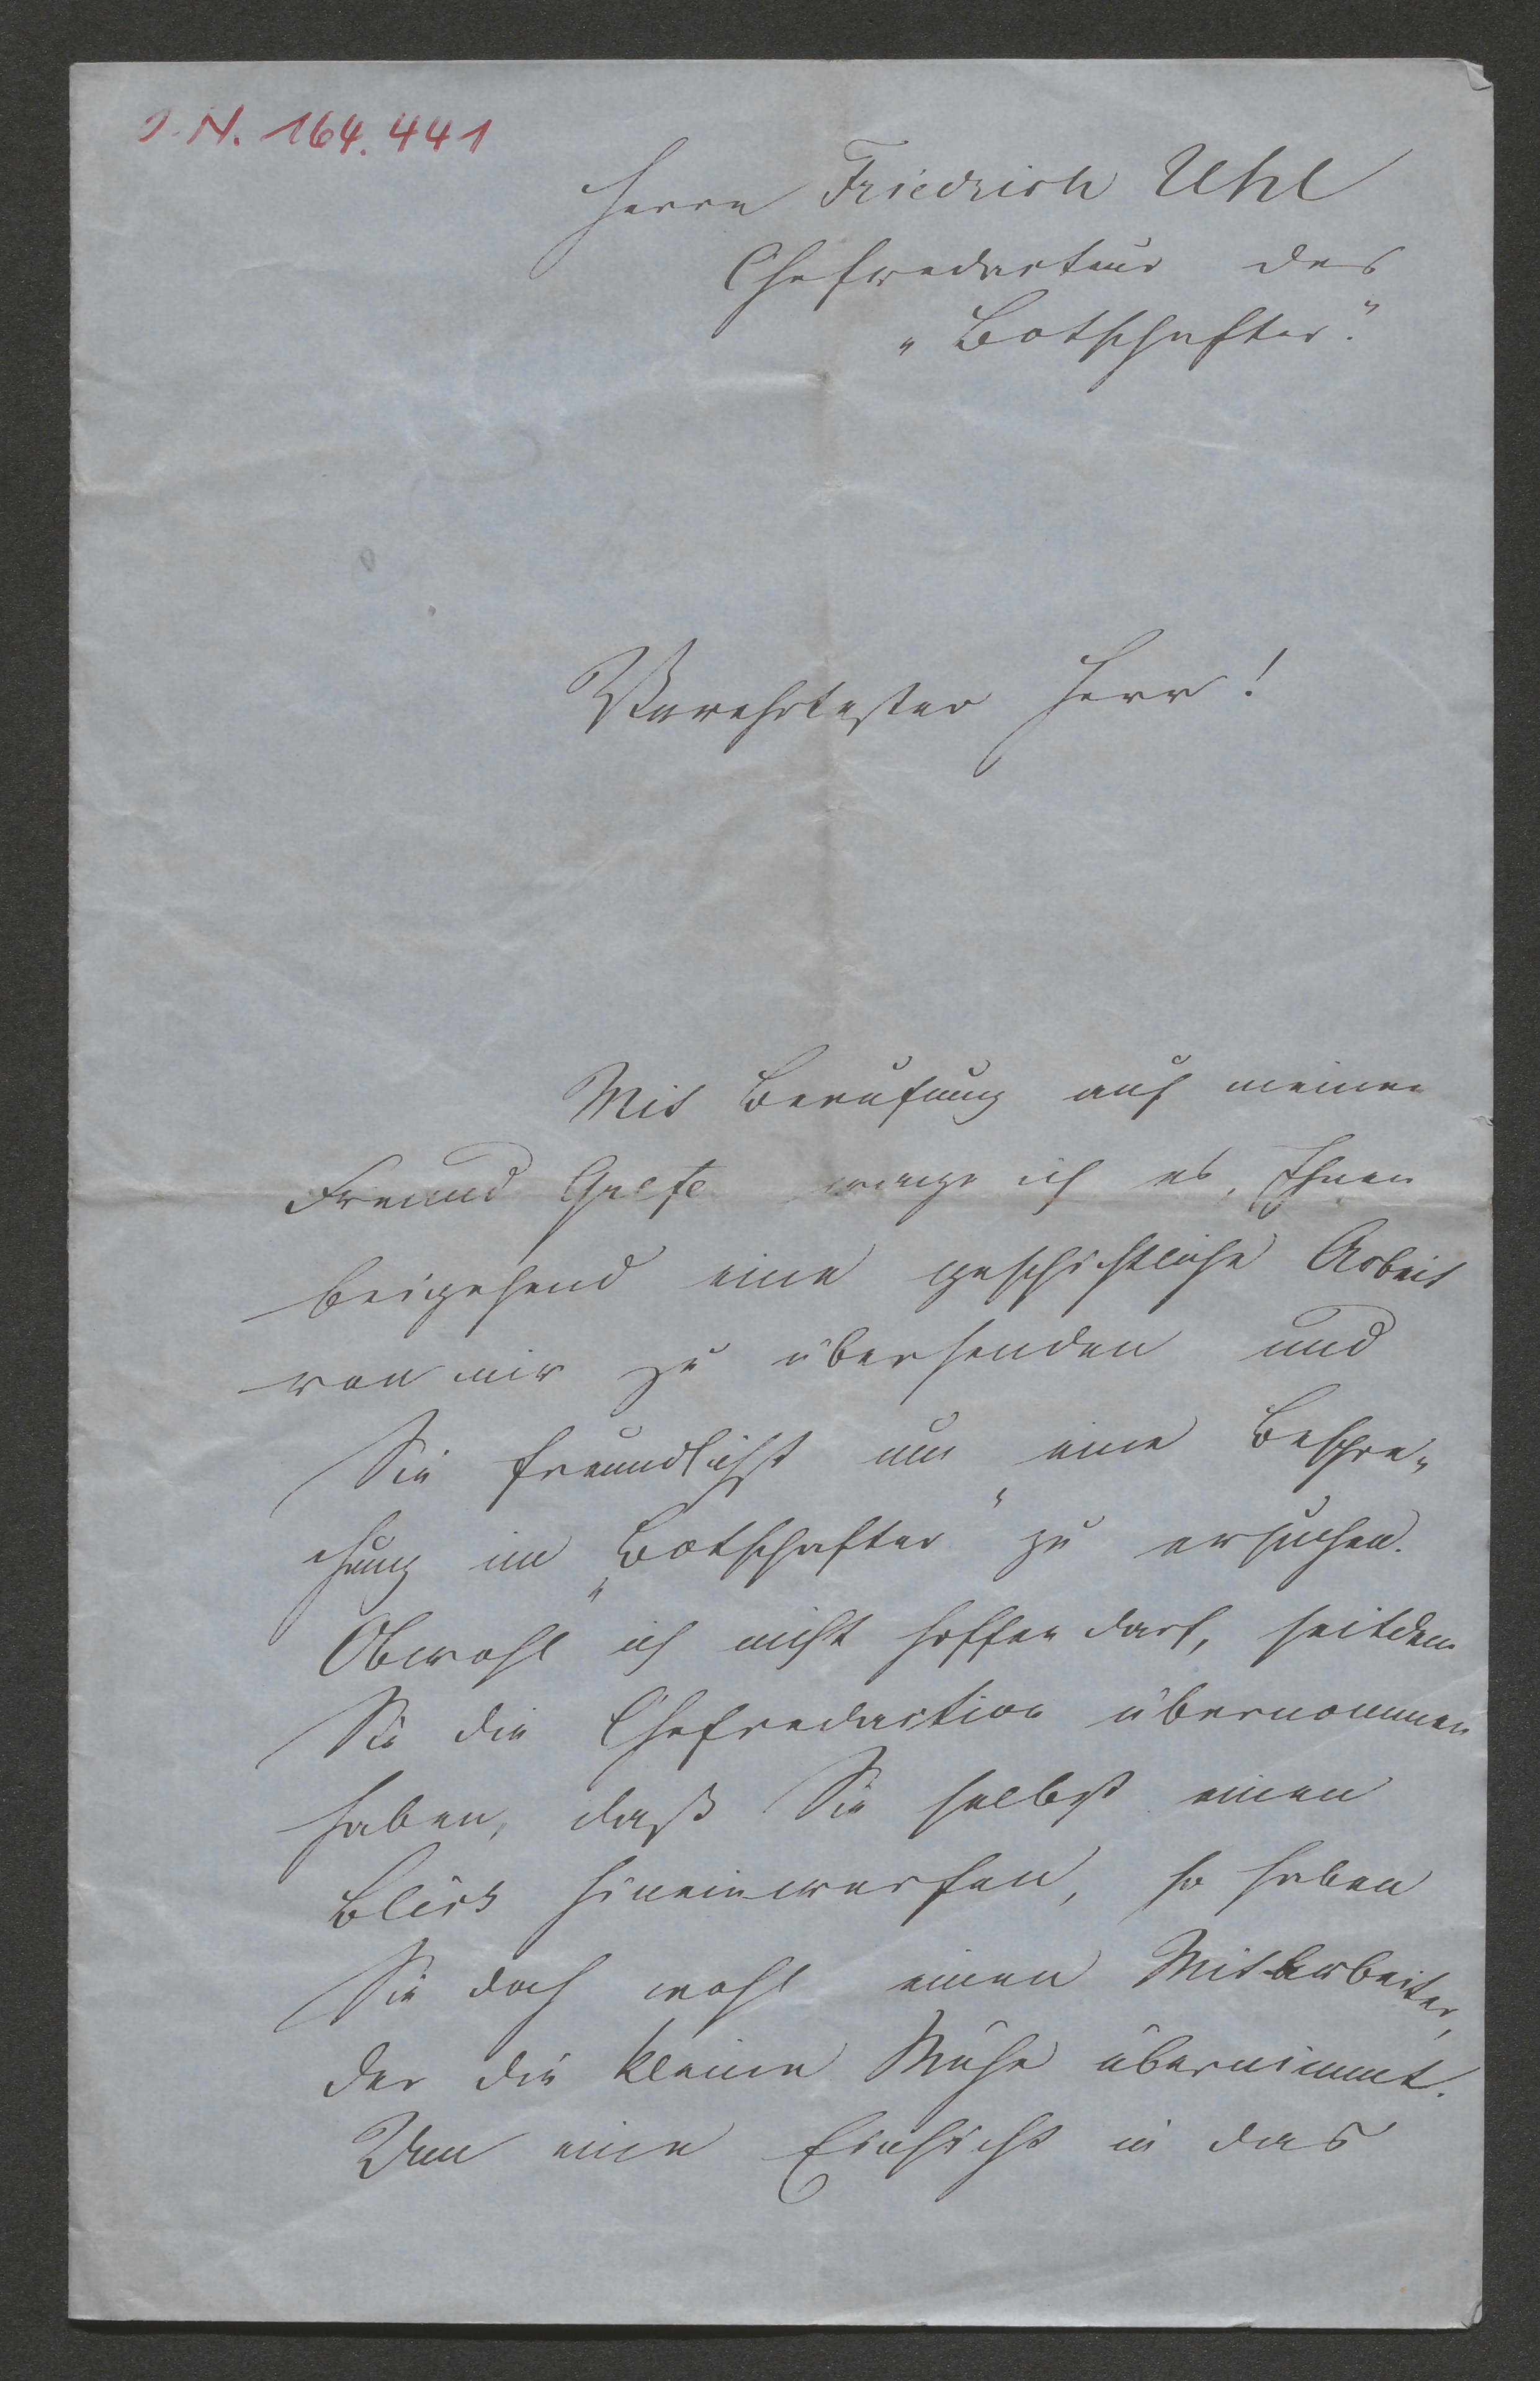 J. N. 164.441
Herrn Friedrich Uhl
Chefredacteur des
„Botschafter."
Verehrtester Herr!
Mit Berufung auf meinen
Freund Grefe wage ich es, Ihnen
beigehend eine geschichtliche Arbeit
von mir zu übersenden und
Sie freundlichst um eine Bespre„
chung im „Botschafter" zu ersuchen.
Obwohl ich nicht hoffen darf, seitdem
Sie die Chefredaction übernommen
haben, daß Sie selbst einen
Blick hineinwerfen, so haben
Sie doch wohl einen Mitarbeiter,
der die kleine Mühe übernimmt.
Um eine Einsicht in das